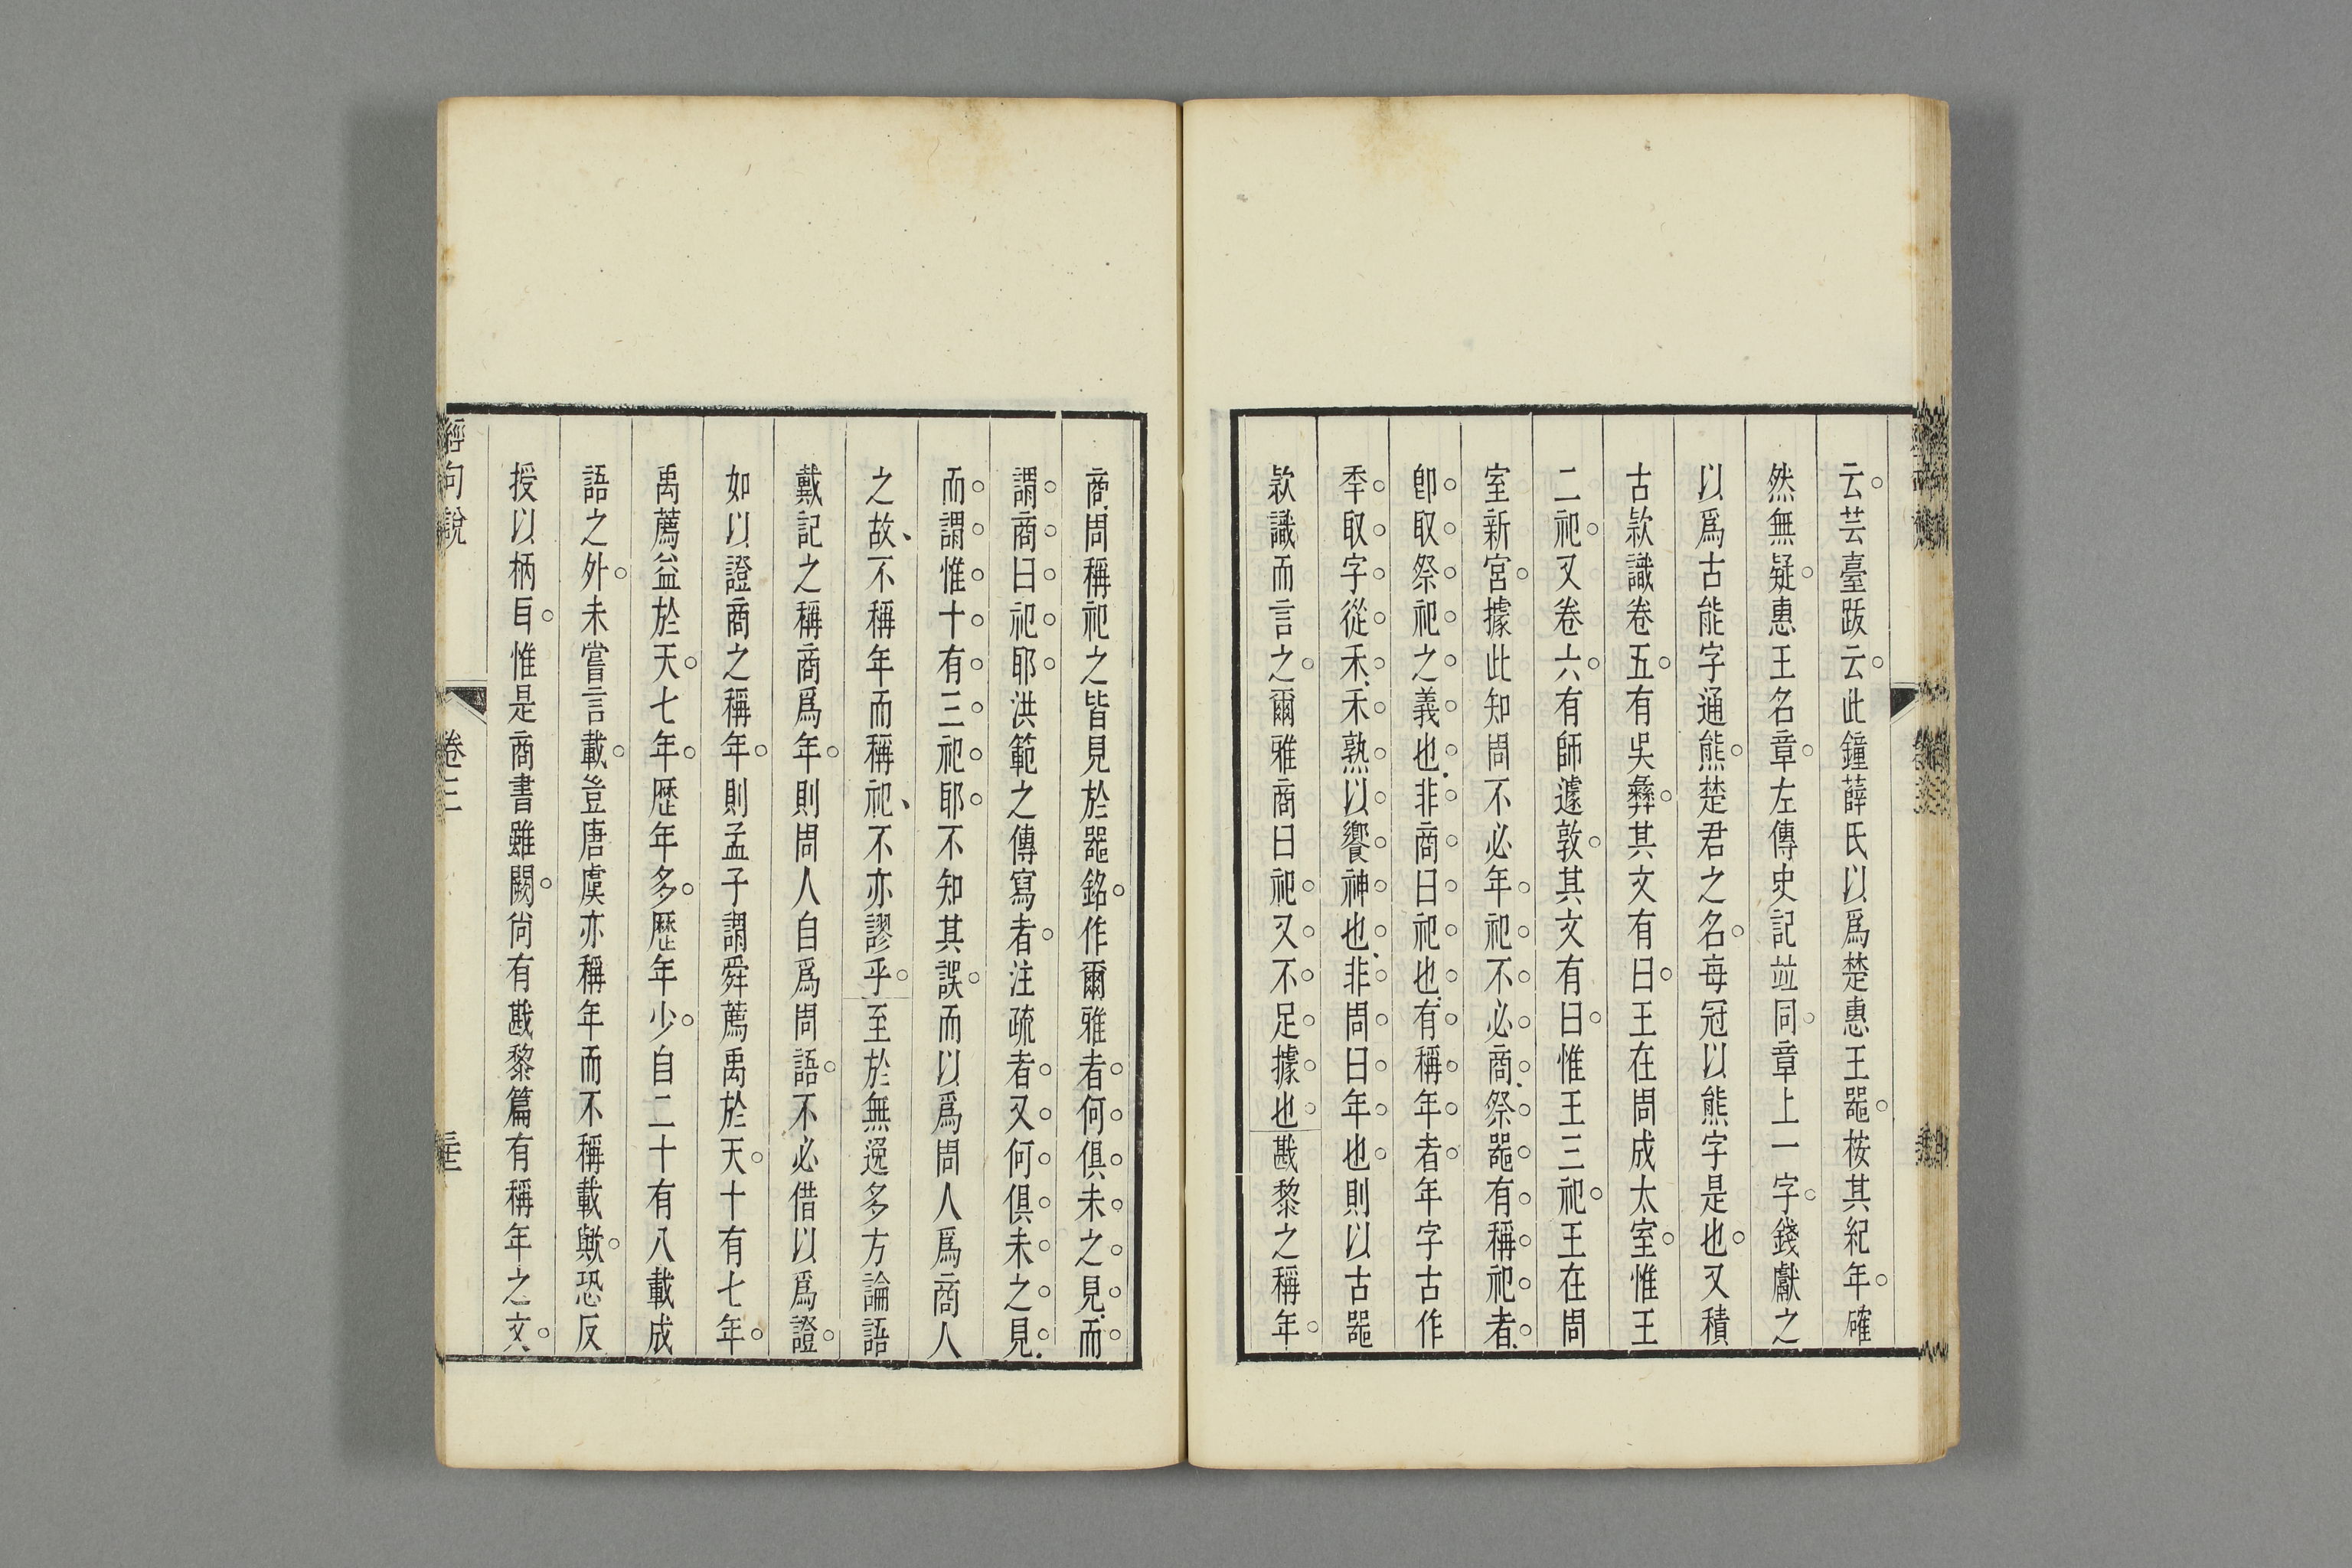 云芸臺跋云此鐘薛氏以爲楚惠王器桉其紀年確
然無疑惠王名章左傳史記竝同章上一字錢獻之
以爲古能字通熊楚君之名每冠以熊字是也又積
古款識卷五有吳彝其文有曰王在周成太室惟王
二祀又卷六有師遽敦其文有曰惟王三祀王在周
室新宮據此知周不必年祀不必商祭器有稱祀者
卽取祭祀之義也非商曰祀也有稱年者年字古作
秊取字從禾禾熟以饗神也非周曰年也則以古器
款識而言之爾雅商曰祀又不足據也戡黎之稱年
商周稱祀之皆見於器銘作爾雅者何俱未之見而
謂商曰祀耶洪範之傳寫者注疏者又何俱未之見
而謂惟十有三祀耶不知其誤而以爲周人爲商人
之故不稱年而稱祀不亦謬乎至於無逸多方論語
戴記之稱商爲年則周人自爲周語不必借以爲證
如以證商之稱年則孟子謂舜薦禹於天十有七年
禹薦益於天七年歷年多歷年少自二十有八載成
語之外未嘗言載豈唐虞亦稱年而不稱載歟恐反
授以柄耳惟是商書雖闕尙有戡黎篇有稱年之文
經句說
卷三